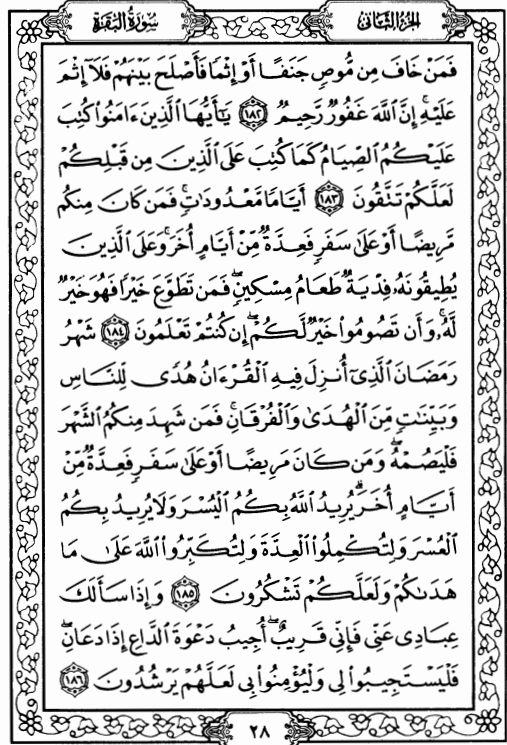 الجزء الثاني
سورة البقرة
فَمَنْ خَافَ مِن مُّوصٍ جَنَفًا أَوْ إِثْمًا فَأَصْلَحَ بَيْنَهُمْ فَلَآ إِثْمَ
عَلَيْهِ ۚ إِنَّ ٱللَّهَ غَفُورٌ رَّحِيمٌ ﴿١٨٢﴾ يَـٰٓأَيُّهَا ٱلَّذِينَ ءَامَنُوا۟ كُتِبَ
عَلَيْكُمُ ٱلصِّيَامُ كَمَا كُتِبَ عَلَى ٱلَّذِينَ مِن قَبْلِكُمْ
لَعَلَّكُمْ تَتَّقُونَ ﴿١٨٣﴾ أَيَّامًا مَّعْدُودَٰتٍ ۚ فَمَن كَانَ مِنكُم
مَّرِيضًا أَوْ عَلَىٰ سَفَرٍ فَعِدَّةٌ مِّنْ أَيَّامٍ أُخَرَ ۚ وَعَلَى ٱلَّذِينَ
يُطِيقُونَهُۥ فِدْيَةٌ طَعَامُ مِسْكِينٍ ۖ فَمَن تَطَوَّعَ خَيْرًا فَهُوَ خَيْرٌ
لَّهُۥ ۚ وَأَن تَصُومُوا۟ خَيْرٌ لَّكُمْ ۖ إِن كُنتُمْ تَعْلَمُونَ ﴿١٨٤﴾ شَهْرُ
رَمَضَانَ ٱلَّذِىٓ أُنزِلَ فِيهِ ٱلْقُرْءَانُ هُدًى لِّلنَّاسِ
وَبَيِّنَـٰتٍ مِّنَ ٱلْهُدَىٰ وَٱلْفُرْقَانِ ۚ فَمَن شَهِدَ مِنكُمُ ٱلشَّهْرَ
فَلْيَصُمْهُ ۖ وَمَن كَانَ مَرِيضًا أَوْ عَلَىٰ سَفَرٍ فَعِدَّةٌ مِّنْ
أَيَّامٍ أُخَرَ ۗ يُرِيدُ ٱللَّهُ بِكُمُ ٱلْيُسْرَ وَلَا يُرِيدُ بِكُمُ
ٱلْعُسْرَ وَلِتُكْمِلُوا۟ ٱلْعِدَّةَ وَلِتُكَبِّرُوا۟ ٱللَّهَ عَلَىٰ مَا
هَدَىٰكُمْ وَلَعَلَّكُمْ تَشْكُرُونَ ﴿١٨٥﴾ وَإِذَا سَأَلَكَ
عِبَادِى عَنِّى فَإِنِّى قَرِيبٌ ۖ أُجِيبُ دَعْوَةَ ٱلدَّاعِ إِذَا دَعَانِ ۖ
فَلْيَسْتَجِيبُوا۟ لِى وَلْيُؤْمِنُوا۟ بِى لَعَلَّهُمْ يَرْشُدُونَ ﴿١٨٦﴾
٢٨